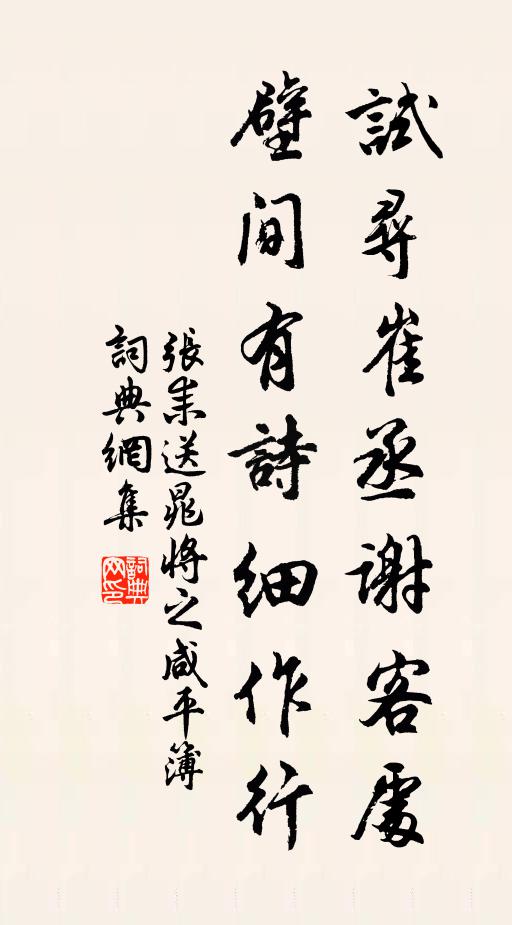 試尋崔丞謝客處
壁間有詩細作行
張耒送晁將之咸平簿
詞典網集
詞典網印